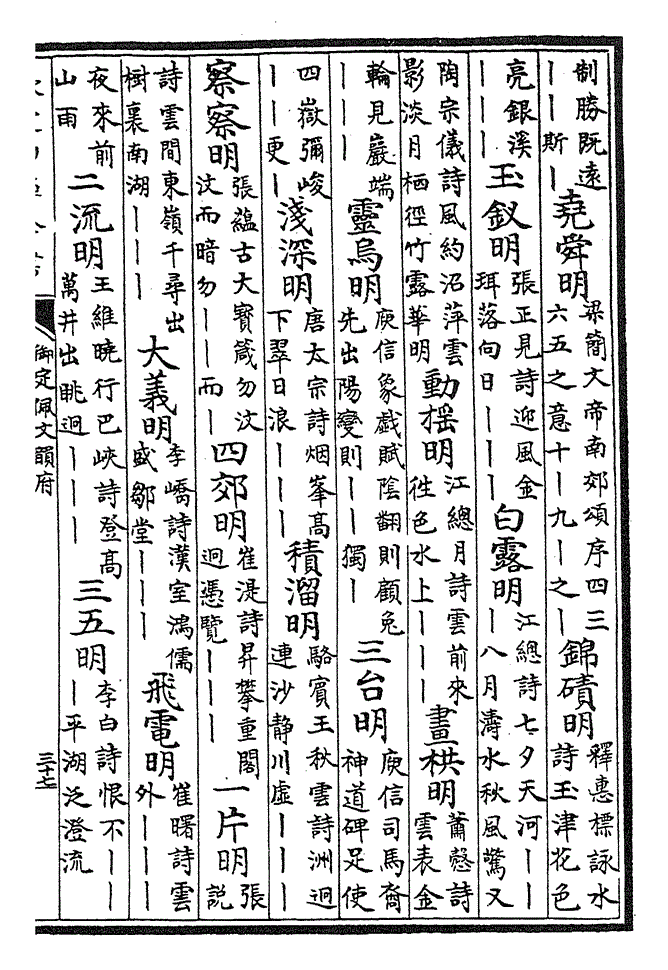 制勝既遠｜｜斯｜堯舜明梁簡文帝南郊頌序四三六五之意十｜九｜之｜錦磧明釋惠標詠水詩玉津花色
亮銀溪｜｜｜玉釵明張正見詩迎風金珥落向日｜｜｜白露明江總詩七夕天河｜｜｜八月濤水秋風驚又
陶宗儀詩風約沼萍雲影淡月栖徑竹露華明動揺明江總月詩雲前来徃色水上｜｜｜畫栱明蕭慤詩雲表金
輪見巖端｜｜｜靈烏明庾信象戲賦陰翻則顧兔先出陽變則｜｜獨｜三台明庾信司馬裔神道碑足使
四嶽彌峻｜｜更｜淺深明唐太宗詩烟峯高下翠日浪｜｜｜積溜明駱賓王秋雲詩洲迥連沙静川虛｜｜｜
察察明張蘊古大寳箴勿汶汶而暗勿｜｜而｜四郊明崔湜詩昇攀重閣迥憑覽｜｜｜一片明張説
詩雲間東嶺千尋出樹裏南湖｜｜｜大義明李嶠詩漢室鴻儒盛鄒堂｜｜｜飛電明崔曙詩雲外｜｜｜
夜來前山雨二流明王維曉行巴峽詩登高萬井出眺迥｜｜｜三五明李白詩恨不｜｜｜平湖泛澄流
御定佩文韻府
三十七